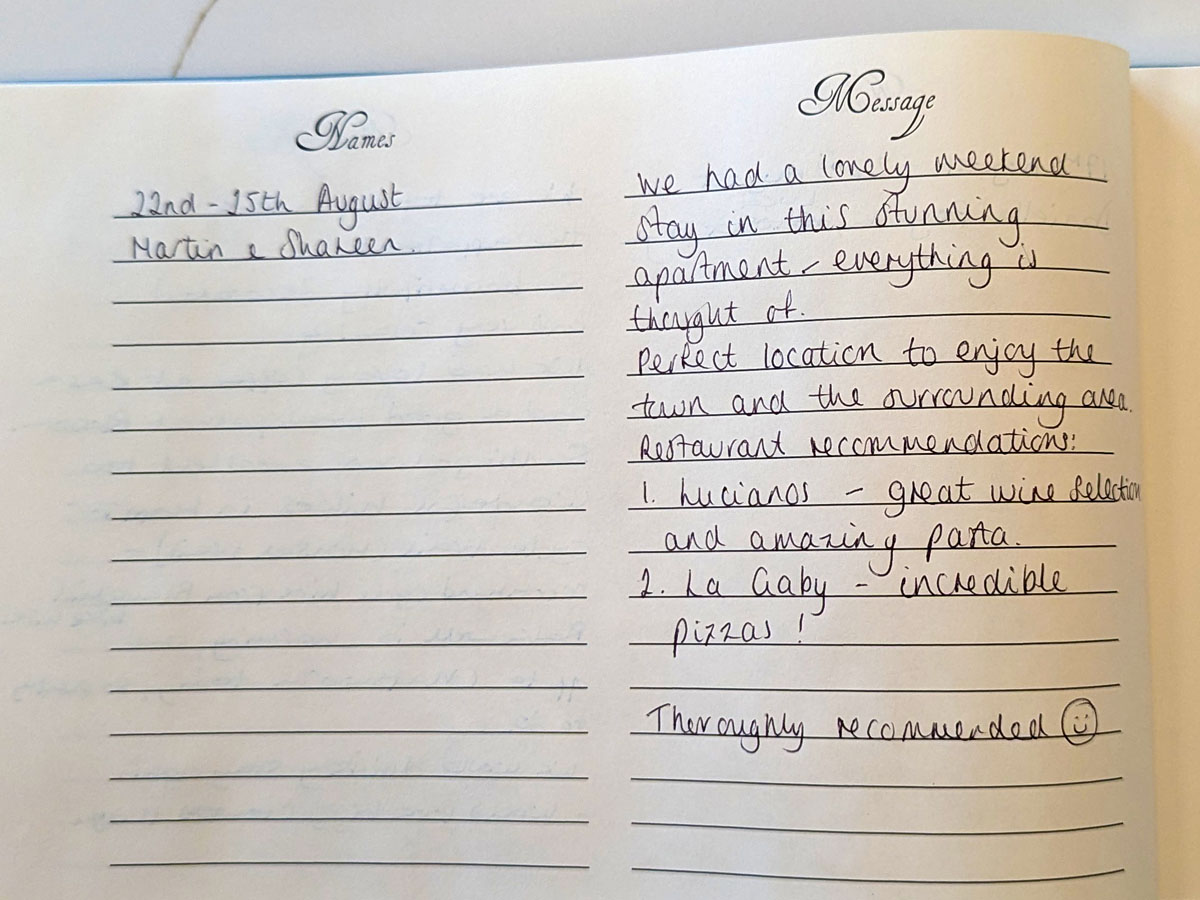 Names
22nd - 25th August
Martin & Shareen.
Message
We had a lovely weekend
stay in this stunning
apartment - everything is
thought of.
Perfect location to enjoy the
town and the surrounding area.
Restaurant recommendations:
1. Lucianos - great wine selection
and amazing pasta.
2. La Gaby - incredible
pizzas!
Thoroughly recommended ☺